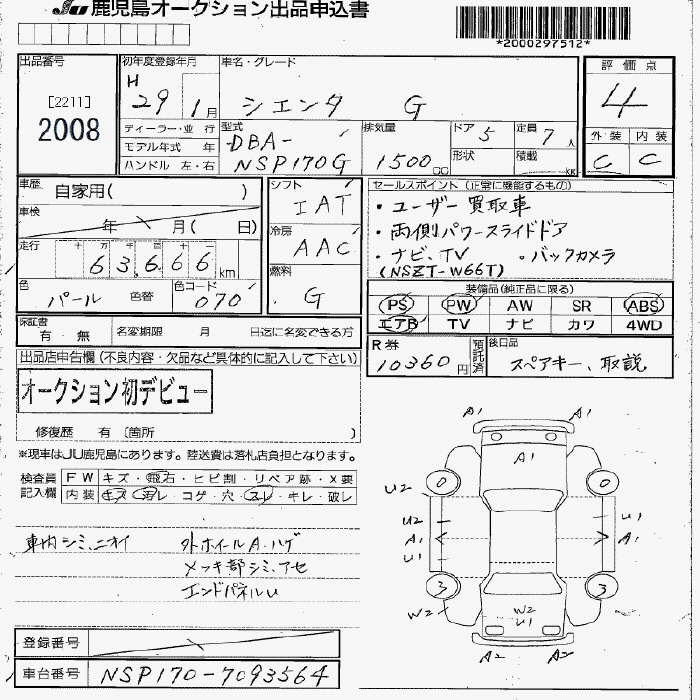 JU 鹿児島オークション出品申込書
*2000297512*
出品番号
[2211]
2008
初年度登録年月
H 29 1月
車名・グレード
シエンタ G
評価点
4
外装 内装
C C
ディーラー・並行
モデル年式 年
ハンドル 左・右
型式
DBA-
NSP170G
排気量
1500 cc
ドア 5
形状
定員 7人
積載 KG
車歴 自家用( )
車検 年 月( 日)
走行 十 万 千 百 十
63,666 km
色 パール 色替 色コード 070
シフト
IAT
冷房
AAC
燃料
G
セールスポイント (正常に機能するもの)
・ユーザー買取車
・両側パワースライドドア
・ナビ、TV ・バックカメラ
(NSZT-W66T)
装備品(純正品に限る)
PS PW AW SR ABS
エアB TV ナビ カワ 4WD
保証書 有・無 名変期限 月 日迄に名変できる方
R券 10360円 預託済
後日品 スペアキー、取説
出品店申告欄 (不良内容・欠品など具体的に記入して下さい)
オークション初デビュー
修復歴 有 〔箇所 )
※現車はJU鹿児島にあります。陸送費は落札店負担となります。
検査員記入欄
FW キズ・飛石・ヒビ割・リペア跡・X要
内装 キズ・汚レ・コゲ・穴・スレ・キレ・破レ
車内シミ、ニオイ 外ホイールA、ハゲ
メッキ部シミ、アセ
エンドパネルU
A1 A1
A1
0 0
U2
U2 U1
A1 A1
U1
3 3
W2 W2
U1
A2 A2
登録番号
車台番号 NSP170-7093564